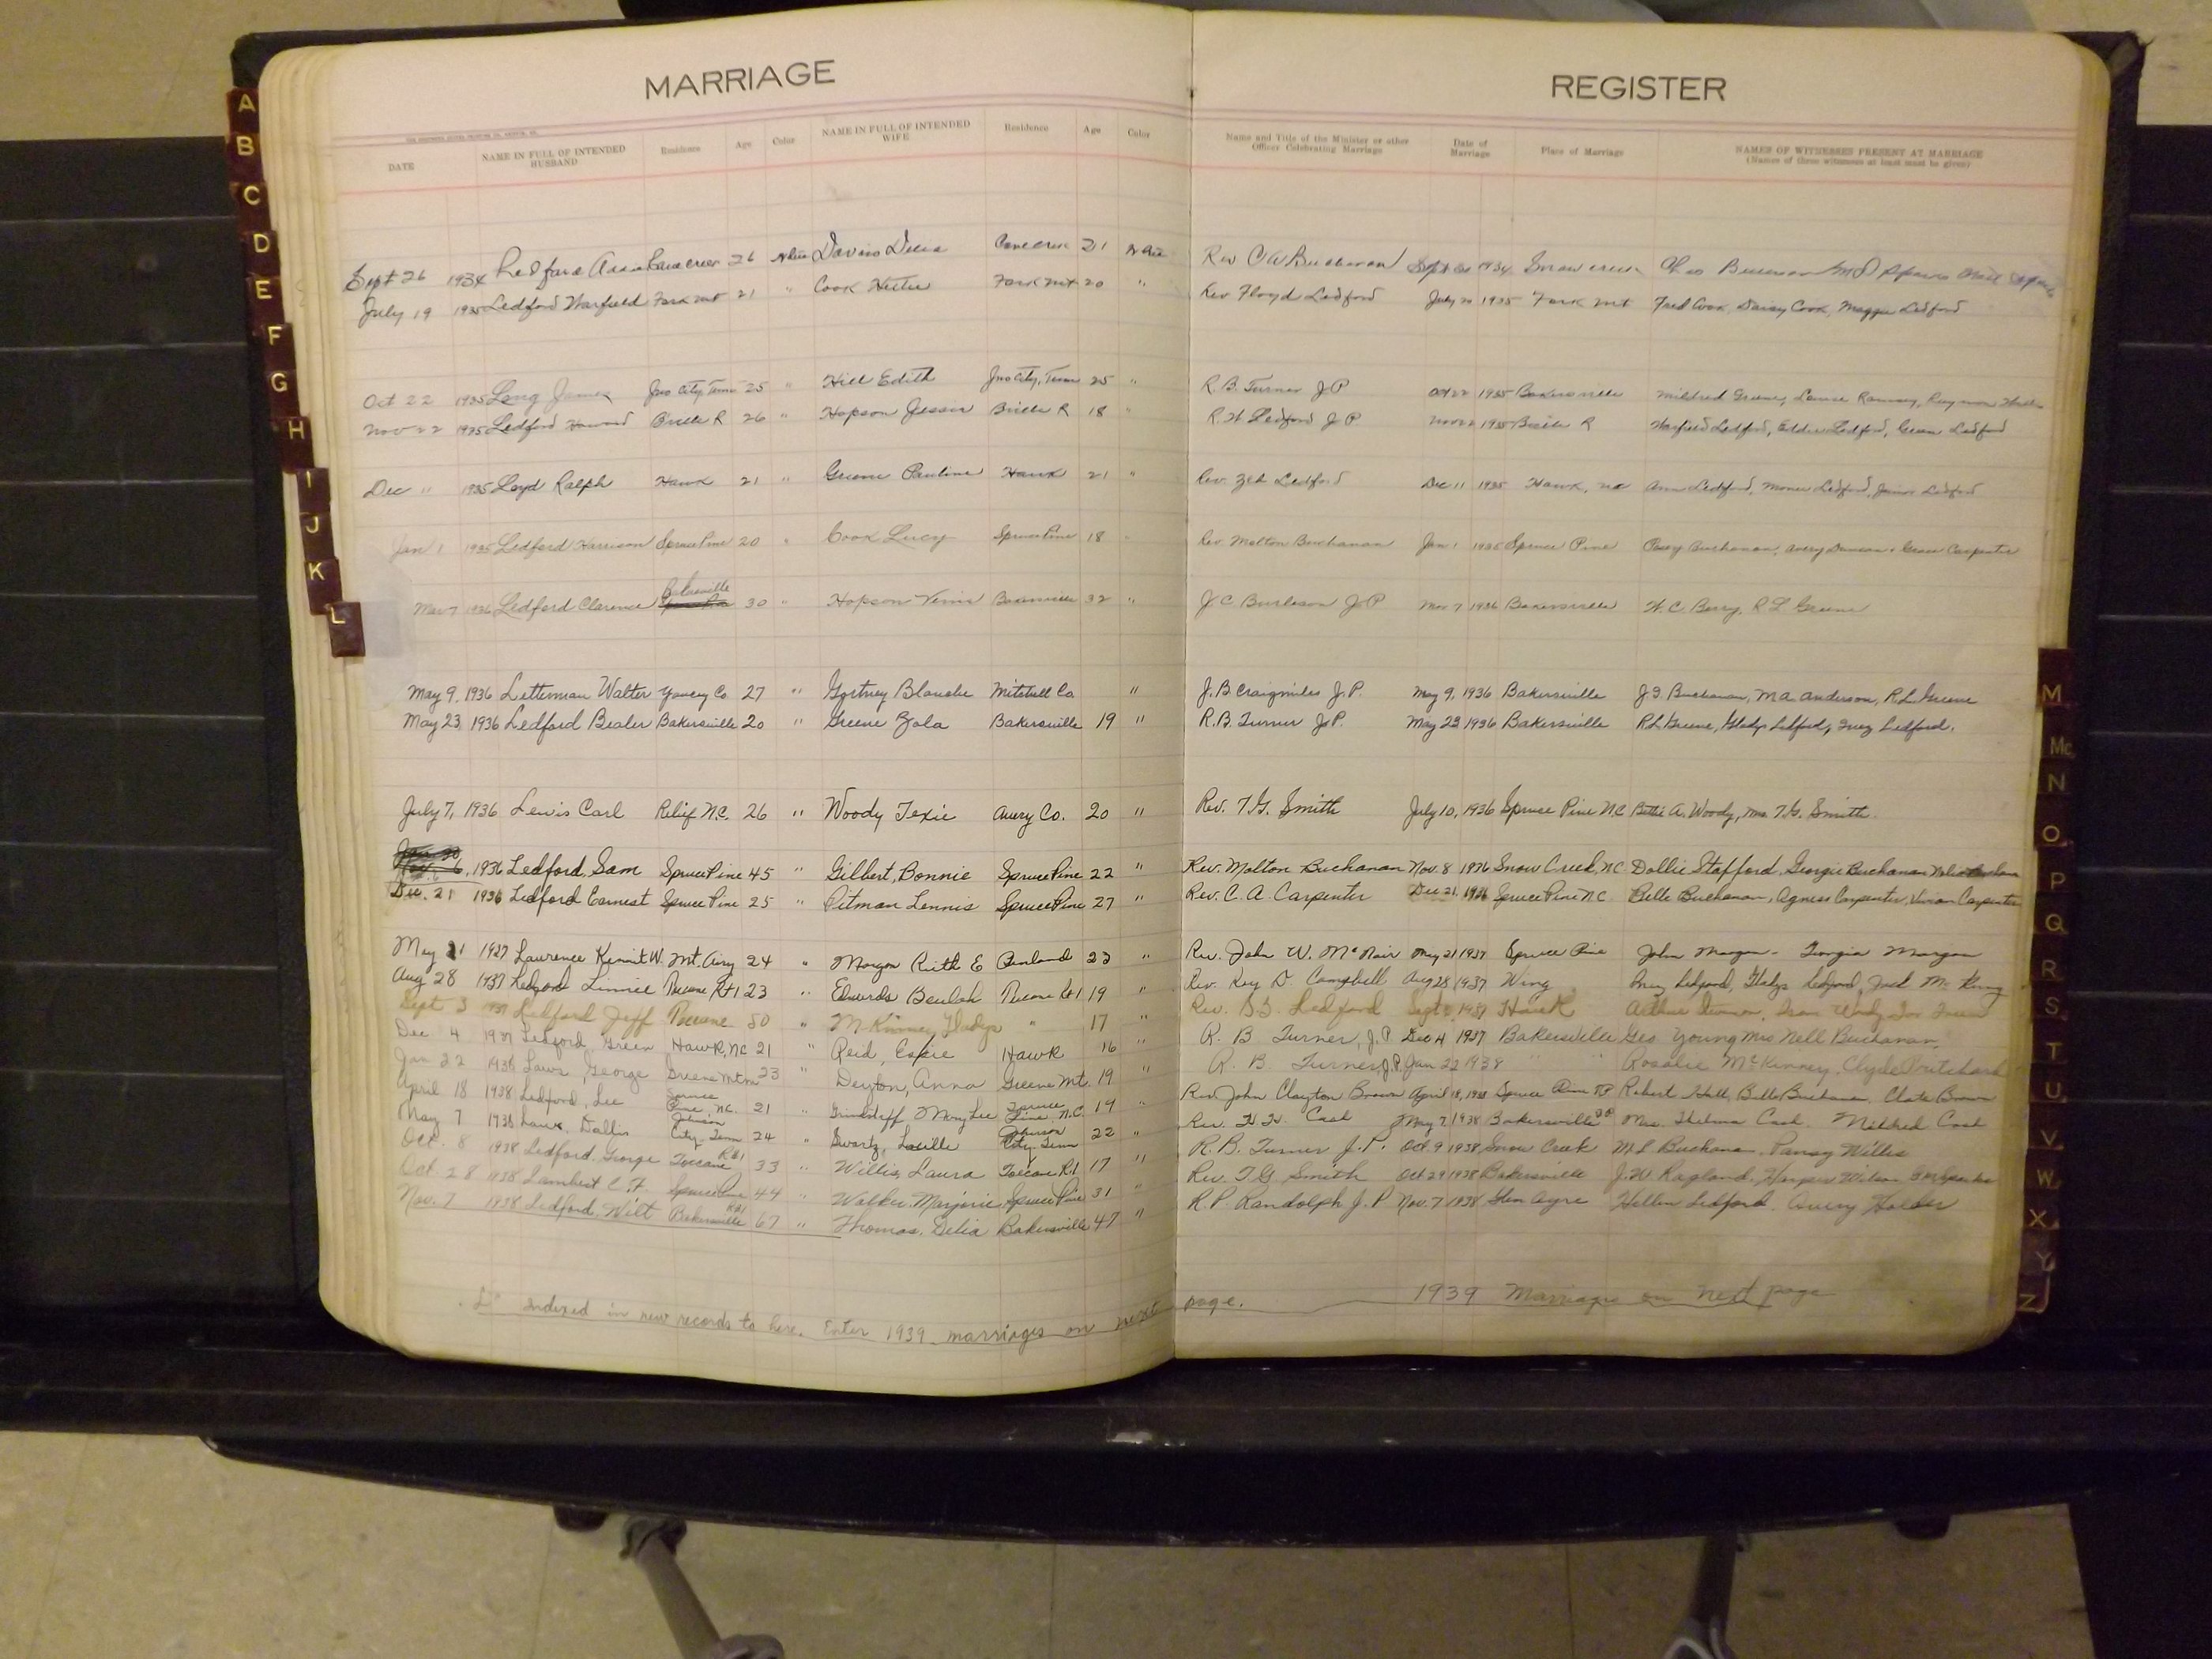 MARRIAGE REGISTER
DATE NAME IN FULL OF INTENDED HUSBAND Residence Age Color NAME IN FULL OF INTENDED WIFE Residence Age Color Name and Title of the Minister or other Officer Celebrating Marriage Date of Marriage Place of Marriage NAMES OF WITNESSES PRESENT AT MARRIAGE (Names of three witnesses at least must be given)
Sept 26 1934 Ledford 26 White Davis 21 White Rev C W Buchanan Sept 1934 Snow creek
July 19 1935 Ledford Warfield Fork mt 21 " Cook Hettie Fork mt 20 " Rev Floyd Ledford July 20 1935 Fork mt Fred Cook, Daisy Cook, Maggie Ledford
Oct 22 1935 Long James Jno City, Tenn 25 " Hill Edith Jno City, Tenn 25 " R. B. Turner J P Oct 22 1935 Bakersville Mildred Greene, Louise Ramsey,
Nov 22 1935 Ledford Howard B'ville R 26 " Hopson Jessie B'ville R 18 " R. W Ledford J P Nov 22 1935 B'ville R Warfield Ledford, Eddie Ledford, Ledford
Dec " 1935 Loyd Ralph Hawk 21 " Greene Pauline Hawk 21 " Rev. Zeb Ledford Dec 11 1935 Hawk, nc Ann Ledford, Ledford, Junior Ledford
Jan 1 1935 Ledford Harrison Spruce Pine 20 " Cook Lucy Spruce Pine 18 " Rev. Molton Buchanan Jan 1 Spruce Pine Buchanan, Avery Duncan, Grace Carpenter
Mar 7 1936 Ledford Clarence Bakersville 30 " Hopson Bakersville 32 " J. C Burleson J P Mar 7 1936 Bakersville W. C. Berry, R L Greene
May 9, 1936 Letterman Walter Yancey Co 27 " Gortney Blanche Mitchell Co " J. B Craigmiles J. P. May 9, 1936 Bakersville Buchanan, M. A. Anderson, R. L. Greene
May 23, 1936 Ledford Bealer Bakersville 20 " Greene Zola Bakersville 19 " R. B. Turner J. P. May 23 1936 Bakersville R. L. Greene, Gladys Ledford, Inez Ledford.
July 7, 1936 Lewis Carl Relief N.C. 26 " Woody Texie Avery Co. 20 " Rev. T. G. Smith July 10, 1936 Spruce Pine N C Bettie A. Woody, Mrs. T. G. Smith
Nov. 6, 1936 Ledford, Sam Spruce Pine 45 " Gilbert, Bonnie Spruce Pine 22 " Rev. Molton Buchanan Nov. 8 1936 Snow Creek, NC Dollie Stafford, Georgie Buchanan
Dec. 21 1936 Ledford Earnest Spruce Pine 25 " Pitman Lennis Spruce Pine 27 " Rev. C. A. Carpenter Dec 21, 1936 Spruce Pine N C Belle Buchanan, Agness Carpenter, Vivian Carpenter
May 21 1937 Laurence Kermit W. Mt. Airy 24 " Morgan Ruth E Penland 23 " Rev. John W. McNair May 21 1937 Spruce Pine John Morgan - Georgia Morgan
Aug 28 1937 Ledford Linnie Toecane Rt 1 23 " Edwards Beulah Toecane Rt 1 19 " Rev. Roy D. Campbell Aug 28 1937 Wing Inez Ledford, Gladys Ledford, Fred McKinney
Sept 3 1937 Ledford Jeff Toecane 50 " McKinney Gladys " 17 " Rev. Ledford Sept 1937 Hawk
Dec 4 1937 Ledford, Green Hawk, NC 21 " Reid, Essie Hawk 16 " R. B Turner, J. P Dec 4 1937 Bakersville Geo Young Mrs Nell Buchanan,
Jan 22 1938 Laws, George Greene Mtn 23 " Deyton, Anna Greene Mt. 19 " R. B Turner, J. P. Jan 22 1938 " " Rosalie McKinney, Clyde Pritchard
April 18 1938 Ledford, Lee Spruce Pine, N.C. 21 " Grindstaff Mary Lee Spruce Pine, N.C. 19 " Rev. John Clayton Brown April 18, 1938 Spruce Pine Robert Hall, Belle Buchanan, Brown
May 7 1938 Laws, Dallis Johnson City, Tenn 24 " Swartz, Lucille Johnson City, Tenn 22 " Rev. H. H. Cash May 7, 1938 Bakersville Mrs. Thelma Cash, Mildred Cash
Oct. 8 1938 Ledford, George Toecane R#1 33 " Willis, Laura Toecane Rt 17 " R. B. Turner J. P. Oct. 9 1938 Snow Creek M. L. Buchanan, Pansy Willis
Oct. 28 1938 Lambert C. Spruce Pine 44 " Walker, Marjorie Spruce Pine 31 " Rev. T. G. Smith Oct 29 1938 Bakersville J. W Ragland, Harper Wilson
Nov. 7 1938 Ledford, Wilt Bakersville R#1 67 " Thomas, Delia Bakersville 47 " R. P. Randolph J. P Nov. 7 1938 Glen Ayre Ledford, Avery
"L" Indexed in new records to here. Enter 1939 marriages on next page. 1939 Marriages on next page
A
B
C
D
E
F
G
H
I
J
K
L
M
Mc
N
O
P
Q
R
S
T
U
V
W
X
Y
Z